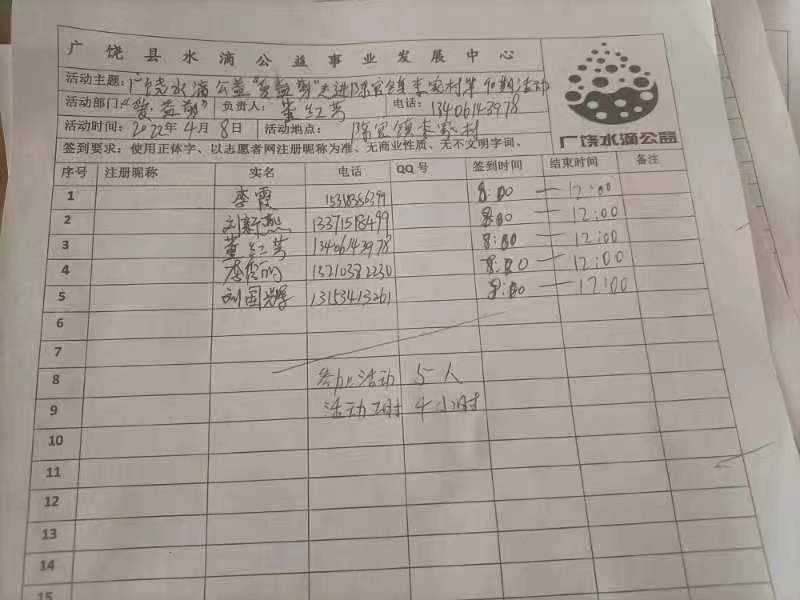 广饶县水滴公益事业发展中心
活动主题：广饶水滴公益"爱益剪"走进陈官镇李家村第 期活动
活动部门："爱益剪" 负责人：董红芳 电话：13406143978
活动时间：2022年4月8日 活动地点：陈官镇李家村
广饶水滴公益
签到要求：使用正体字、以志愿者网注册昵称为准、无商业性质、无不文明字词。
序号 注册昵称 实名 电话 QQ号 签到时间 结束时间 备注
1 李霞 8:00 — 12:00
2 刘新 13371518499 8:00 — 12:00
3 董红芳 13406143978 8:00 — 12:00
4 李 8:00 — 12:00
5 刘国 13153413261 8:00 — 12:00
6
7
8 参加活动 5人
9 活动工时 4小时
10
11
12
13
14
15